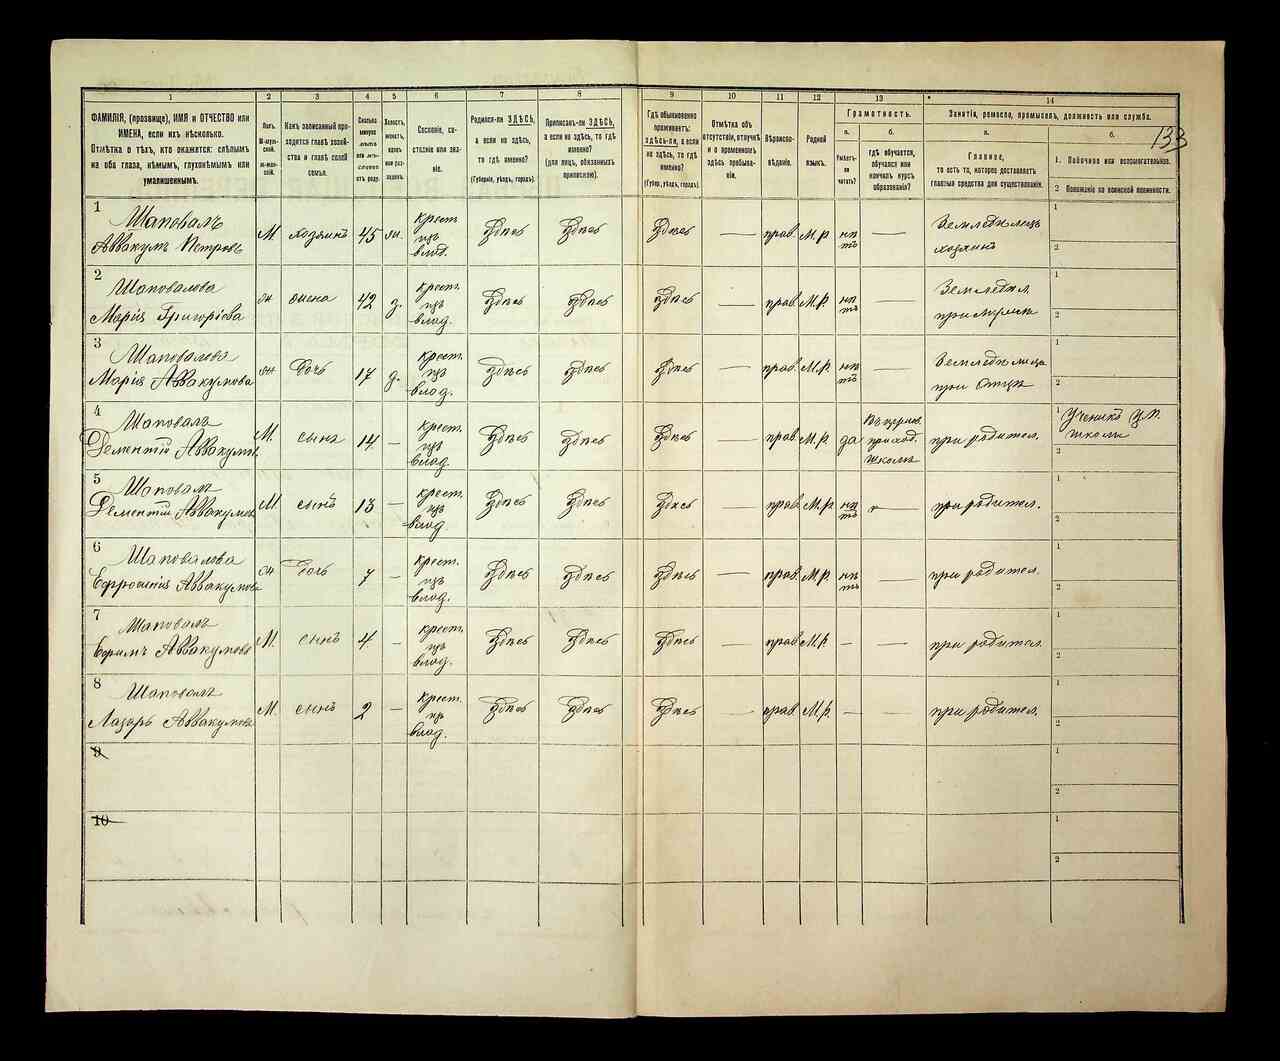 133
1 2 3 4 5 6 7 8 9 10 11 12 13 14
ФАМИЛІЯ, (прозвище), ИМЯ и ОТЧЕСТВО или
ИМЕНА, если ихъ нѣсколько.
Отмѣтка о тѣхъ, кто окажется: слѣпымъ
на оба глаза, нѣмымъ, глухонѣмымъ или
умалишеннымъ.
Полъ.
М-мужской.
Ж-женскій.
Какъ записанный приходится
главѣ хозяйства и главѣ своей
семьи.
Сколько
минуло
лѣтъ
Холостъ,
женатъ,
вдовъ
или разведенъ.
Сословіе, состояніе
или званіе.
Родился-ли ЗДѢСЬ,
а если не здѣсь,
то гдѣ именно?
(Губернія, уѣздъ, городъ).
Приписанъ-ли ЗДѢСЬ,
а если не здѣсь, то гдѣ
именно?
(для лицъ, обязанныхъ
припискою).
Гдѣ обыкновенно
проживаетъ:
здѣсь-ли, а если
не здѣсь, то гдѣ
именно?
(Губер., уѣздъ, городъ).
Отмѣтка объ
отсутствіи, отлучкѣ
и о временномъ
здѣсь пребываніи.
Вѣроисповѣданіе.
Родной
языкъ.
Грамотность.
а.
Умѣетъ-ли
читать?
б.
гдѣ обучается,
обучался или
кончилъ курсъ
образованія?
Занятія, ремесло, промыселъ, должность или служба.
а.
Главное,
то есть то, которое доставляетъ
главныя средства для существованія.
б.
1. Побочное или вспомогательное.
2 Положеніе по воинской повинности.
1
Шаповалъ
Аввакумъ Петровъ М. хозяинъ 45 жн. крест. изъ влад. Здѣсь Здѣсь Здѣсь — прав. М.р. нѣтъ — Земледѣлецъ хозяинъ
2
Шаповалова
Марія Григоріева ж жена 42 з. крест. изъ влад. Здѣсь Здѣсь Здѣсь — прав. М.р. нѣтъ — Землед. при мужѣ
3
Шаповалова
Марія Аввакумова ж Дочь 17 д. крест. изъ влад. здѣсь здѣсь Здѣсь — прав. М.р. нѣтъ — Земледѣлица при Отцѣ
4
Шаповалъ
Дементій Аввакумовъ М. сынъ 14 — крест. изъ влад. Здѣсь Здѣсь Здѣсь — прав. М.р. да Въ церков. приход. школѣ при родител. Ученикъ Ц.П. школы
5
Шаповалъ
Дементій Аввакумовъ М. сынъ 13 — крест. изъ влад. Здѣсь Здѣсь Здѣсь — прав. М.р. нѣтъ — при родител.
6
Шаповалова
Ефросинія Аввакумова ж Дочь 7 — крест. изъ влад. Здѣсь Здѣсь Здѣсь — прав. М.р. нѣтъ — при родител.
7
Шаповалъ
Ефимъ Аввакумовъ М. сынъ 4 — крест. изъ влад. Здѣсь Здѣсь Здѣсь — прав. М.р. — — при родител.
8
Шаповалъ
Лазарь Аввакумовъ М. сынъ 2 — крест. изъ влад. Здѣсь Здѣсь Здѣсь — прав. М.р. — — при родител.
9
10